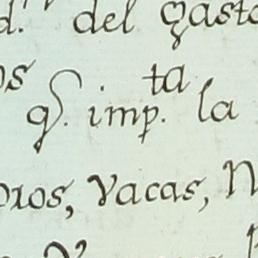 d. del gasto
os
q. imp.ta la
oros, vacas, N